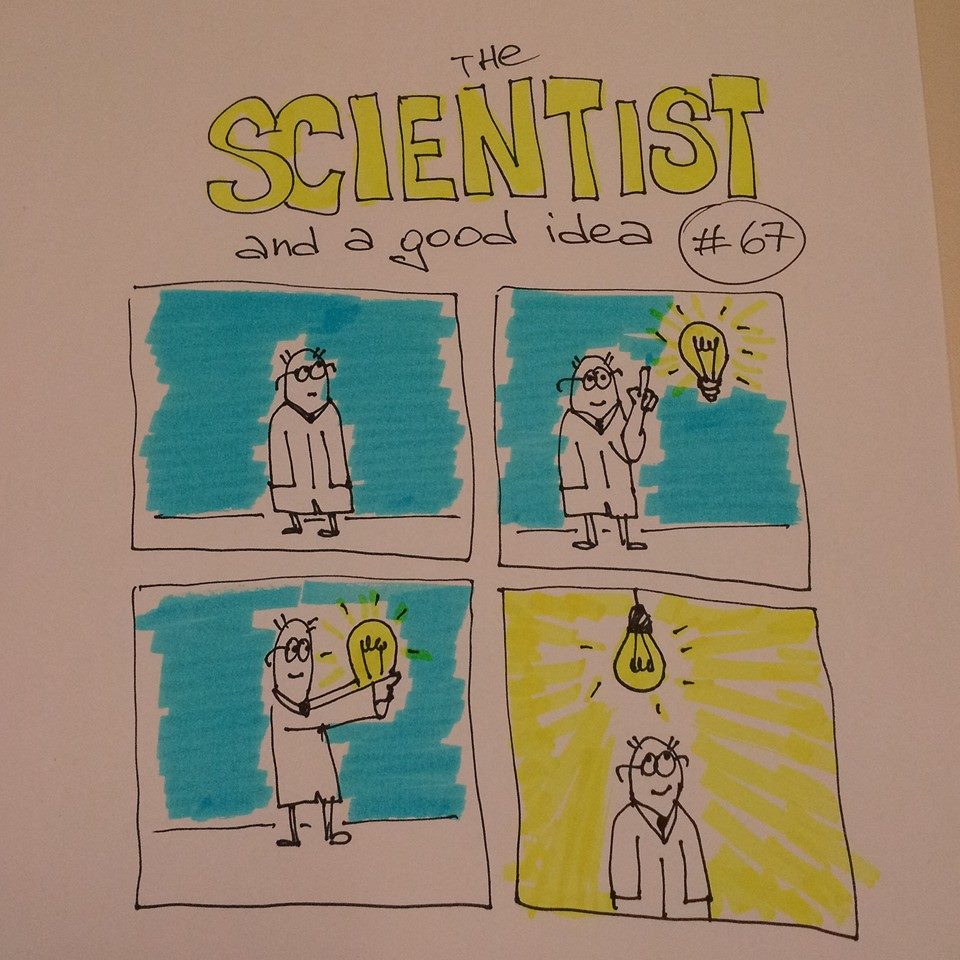 THe
SCIENTIST
and a good idea #67